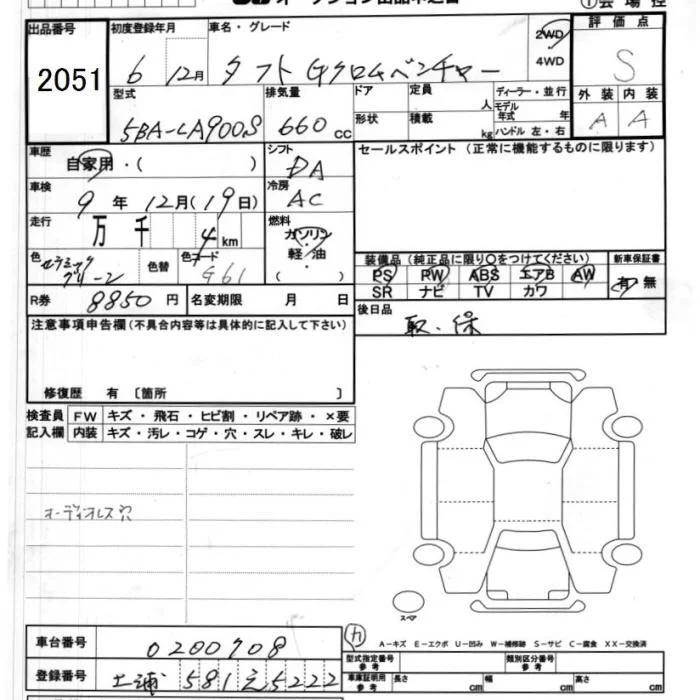 オークション出品申込書
①会場控
出品番号 2051
初度登録年月 6 12月
車名・グレード タフト Gクロムベンチャー
2WD
4WD
評価点 S
外装 A 内装 A
型式 5BA-LA900S
排気量 660 cc
ドア
形状
定員 人
積載 kg
ディーラー・並行
モデル年式 年
ハンドル 左・右
車歴 自家用・( )
シフト DA
セールスポイント (正常に機能するものに限ります)
車検 9年 12月(19日)
冷房 AC
走行 万 千 4 km
燃料 ガソリン
軽・油
( )
色 セラミックグリーン
色替
色コード G61
装備品(純正品に限り○をつけてください)
PS PW ABS エアB AW
SR ナビ TV カワ
新車保証書
有・無
R券 8850 円
名変期限 月 日
後日品 取・保
注意事項申告欄(不具合内容等は具体的に記入して下さい)
修復歴 有 〔箇所 〕
検査員記入欄
FW キズ・飛石・ヒビ割・リペア跡・×要
内装 キズ・汚レ・コゲ・穴・スレ・キレ・破レ
オーディオレス穴
スペア
車台番号 0200708
登録番号 土浦 581 え 5222
カ
A-キズ E-エクボ U-凹み W-補修跡 S-サビ C-腐食 XX-交換済
型式指定番号 参考
類別区分番号 参考
車庫証明用 参考 長さ cm 幅 cm 高さ cm